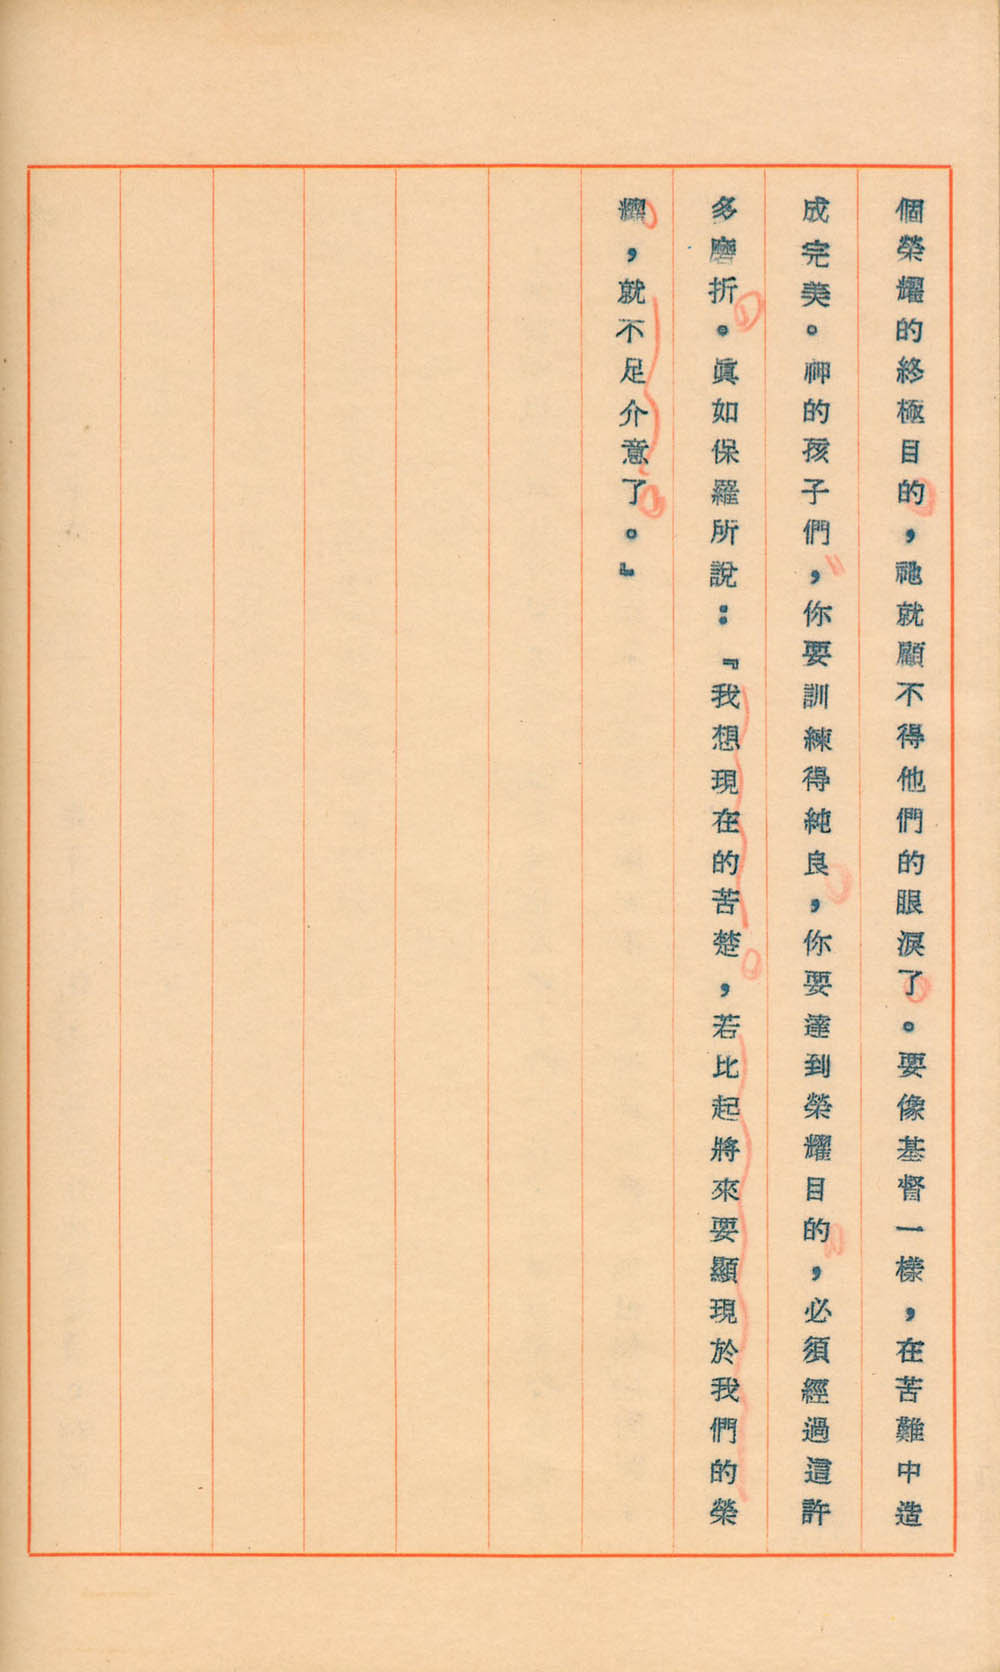 個榮耀的終極目的，祂就顧不得他們的眼淚了。要像基督一樣，在苦難中造
成完美。神的孩子們，你要訓練得純良，你要達到榮耀目的，必須經過這許
多磨折。眞如保羅所說：『我想現在的苦楚，若比起將來要顯現於我們的榮
耀，就不足介意了。』